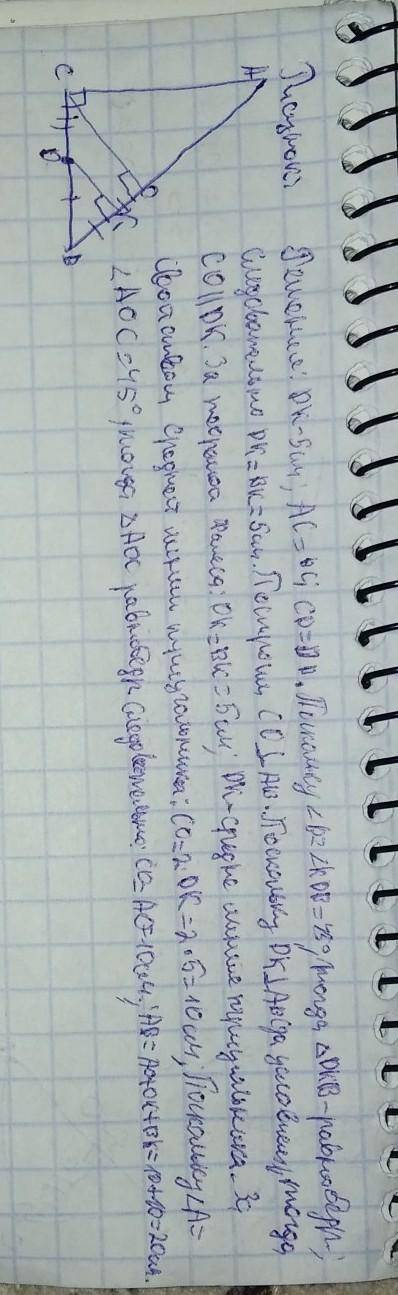 Рисунок: Решение: DK-5см; AC=BC; CD=BD. Поскольку ∠B=∠KDB=45°, тогда ΔDKB-равнобедр.;
следовательно DK=BK=5см. Построим CO⊥AB. Поскольку DK⊥AB(за условием), тогда
CO||DK. За теоремой Фалеса: OK=BK=5см; DK-средня линия треугольника. За
свойством средней линии треугольника: CO=2·DK=2·5=10см; Поскольку ∠A=
∠AOC=45°, тогда ΔAOC равнобедр следовательно: CO=AO=10см; AB=AO+OK+BK=10+10=20см.
A
C
D
B
O
K